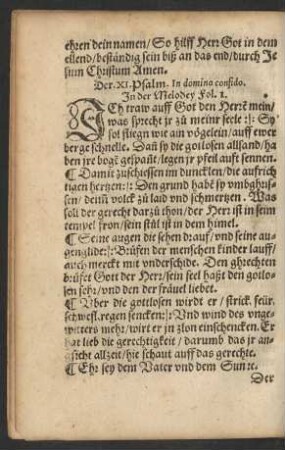 ehren dein namen/ So hilff Herr Got in dem
ellend/ bestándig sein biß an das end/ durch Je
sum Christum Amen.
Der. XI. Psalm. In domino confido.
In der Melodey Fol. 1.
ICh traw auff Got den Herrẽ mein/
was sprecht jr zů meinr seele :/: So
sol fliegn wie ain vögelein/ auff ewer
berge schnelle. Dañ sy die gotlosen allsand/ ha
ben jre bogẽ gespañt/ legen jr pfeil auff sennen.
¶ Damit zuschiessen im duncklen/ die auffrich
tigen hertzen :/: Den grund habẽ sy vmbghris-
sen/ deinẽ volck zů laid vnd schmertzen. Was
soll der gerecht darzů thon/ der Herr ist in seim
tempel fron/ sein stůl ist in dem himel.
¶ Seine augen die sehen drauf/ vnd seine au-
genglide :/: Brüfen der menschen kinder lauff/
auch merckt mit vnderschide. Den ghrechten
brüfet Gott der Herr/ sein seel haßt den gotlo-
sen sehr/ vnd den der fráuel liebet.
¶ Vber die gottlosen wirdt er/ strick. feür.
schwefl. regen sencken :/: Vnd wind des vnge-
witters mehr/ wirt er jn zlon einschencken. Er
hat lieb die gerechtigkeit/ darumb das jr an-
gsicht allzeit/ hie schaut auff das gerechte.
¶ Ehr sey dem Vater vnd dem Sun ꝛc.
Der